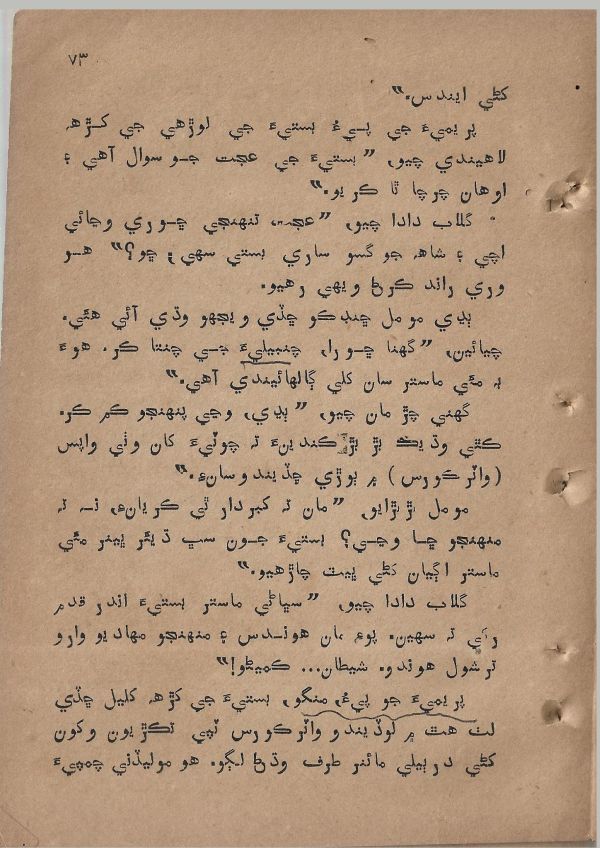 ٧٣
کڻي ايندس."
پريميءَ جي پيءُ بستيءَ جي لوڙهي جي ڪڙهه
لاهيندي چيو، "بستيءَ جي عجت جو سوال آهي ۽
اوهان چرچا ٿا ڪريو."
گلاب دادا چيو، "عجت، تنهنجي ڇوري وڃائي
اچي ۽ شاهه جو گسو ساري بستي سهي؛ ڇو؟" هو
وري راند ڪرڻ ويهي رهيو.
ٻڍي مومل ڇنڊڪو ڇڏي ويجهو وڌي آئي هئي.
چيائين، "گهنا ڇورا، چنبيليءَ جي چنتا ڪر. هوءَ
به مئي ماستر سان کلي ڳالهائيندي آهي."
گهني چڙ مان چيو، "ٻڍي، وڃي پنهنجو ڪم ڪر.
ڪٿي وڌيڪ بڙ بڙ ڪندينءَ ته چوٽيءَ کان وٺي واپس
(واٽرڪورس) ۾ ٻوڙي ڇڏيندوسانءِ."
مومل بڙبڙايو، "مان ته کبردار ٿي ڪريانءِ، نہ تہ
منهنجو ڇا وڃي؟ بستيءَ جون سڀ ڌيئر ڀينر مئي
ماستر اڳيان کڻي ڀيٽ چاڙهيو."
گلاب دادا چيو، "سڀاڻي ماستر بستيءَ اندر قدم
رکي ته سهين. پوءِ مان هوندس ۽ منهنجو مهاديو وارو
ترشول هوندو. شيطان... ڪميڻو!"
پريميءَ جو پيءُ، منگو، بستيءَ جي کڙهه کليل ڇڏي
لٺ هٿ ۾ لوڏيندو واٽرڪورس ٽپي تڪڙيون وکون
کڻي درٻيلي مائنر طرف وڌڻ لڳو. هو موليڏني چمپيءَ